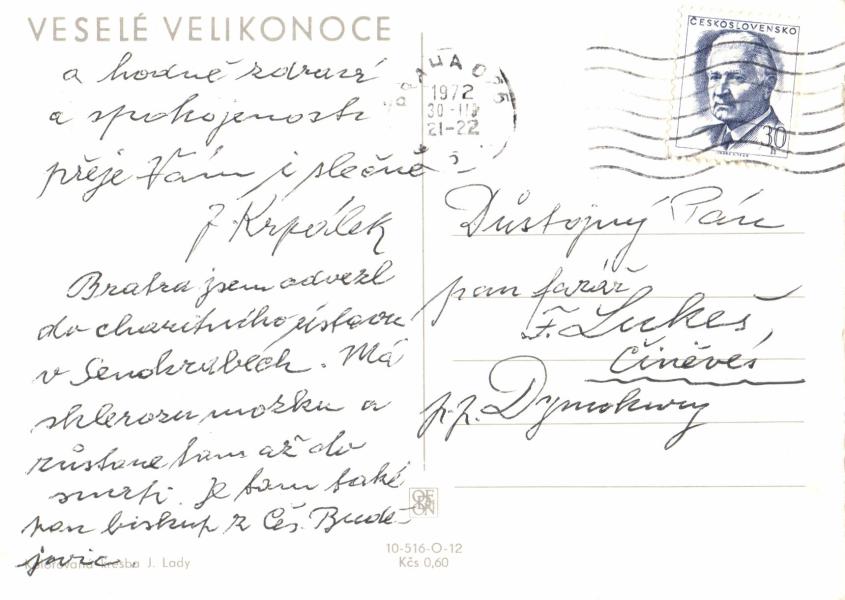 VESELÉ VELIKONOCE
a hodně zdraví
a spokojenosti
přeje Vám i slečně
J. Krpálek
Bratra jsem odvezl
do charitního ústavu
v Senohrabech. Má
sklerozu mozku a
zůstane tam až do
smrti. Je tam také
pan biskup z Čes. Budě-
jovic.
Kolorovaná kresba J. Lady
PRAHA 055
1972
30-III
21-22
ČESKOSLOVENSKO
30
h
Důstojný Pán
pan farář
F. Lukeš,
Činěves
p.p. Dymokury
10-516-O-12
Kčs 0,60